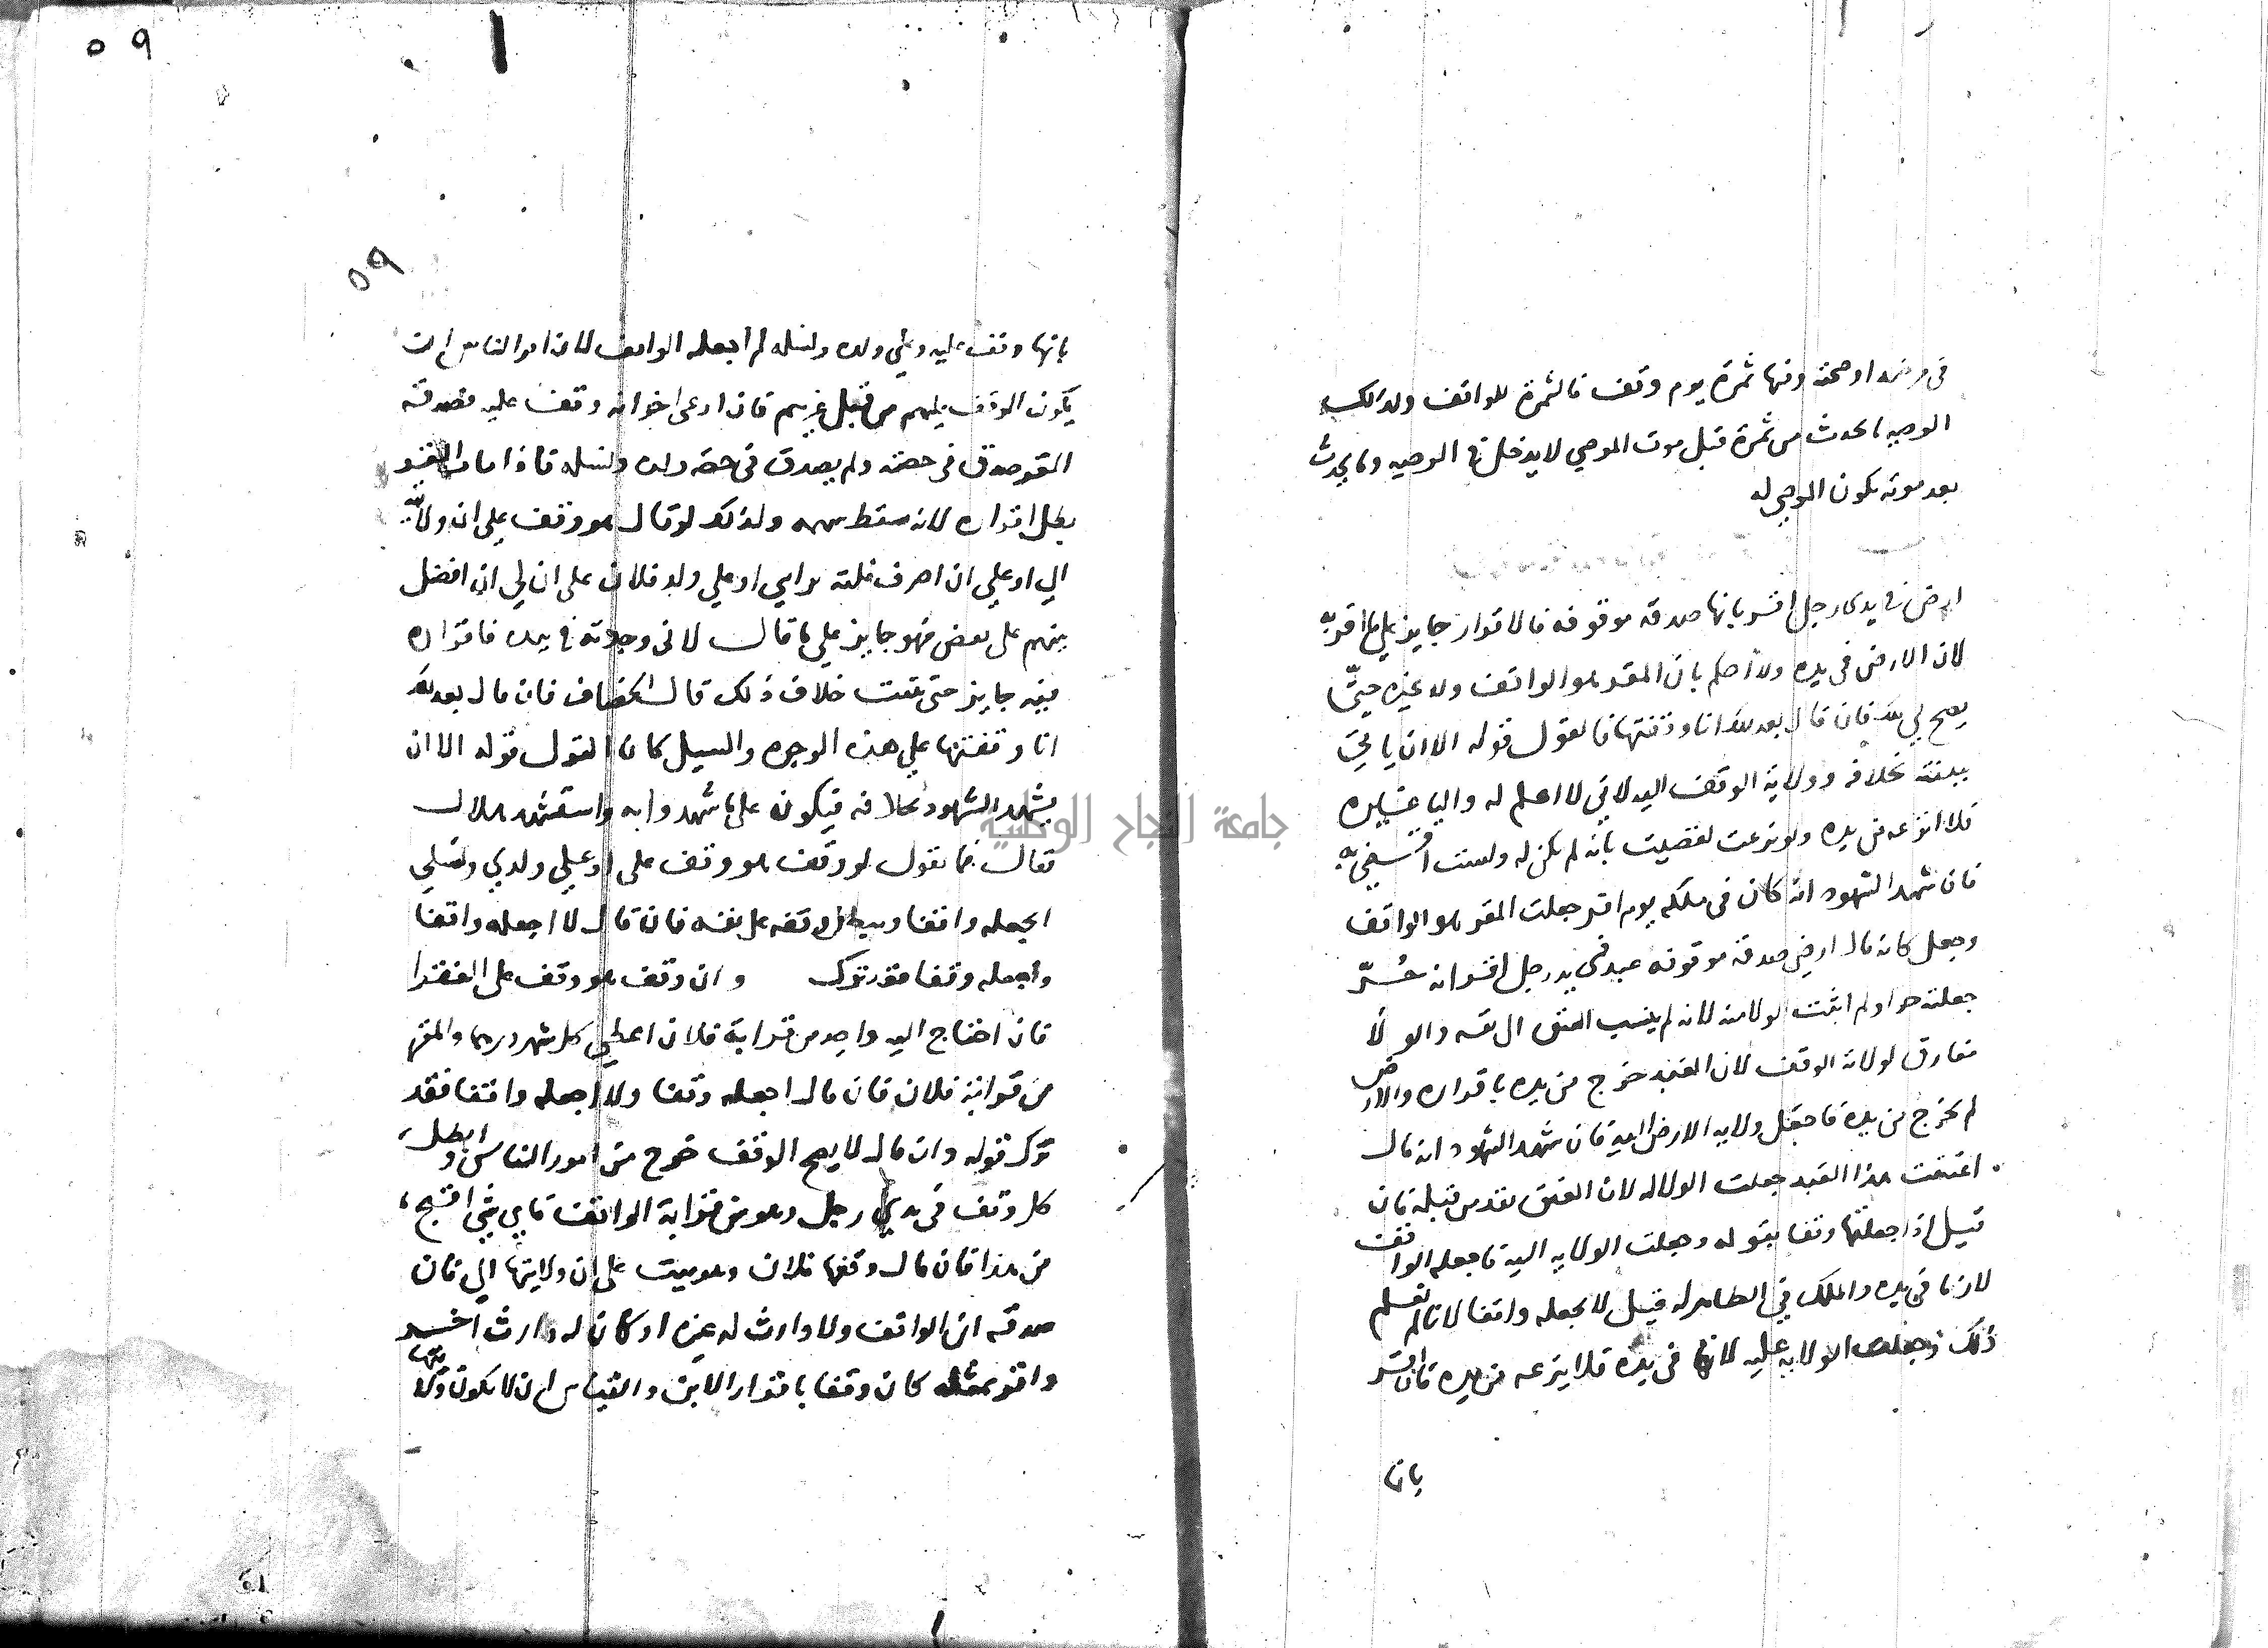 في مرضه او صحته وفيها ثمرة يوم وقف فالثمرة للواقف وكذلك
الوصية ما يحدث من ثمرة قبل موت الموصي لا يدخل في الوصيه وما يحدث
بعد موته يكون للموصي له
ارض في يدي رجل اقر بانها صدقه موقوفه فالاقرار جايز علي ما اقر به
لان الارض في يده ولا احكم بان المقر هو الواقف ولا غيره حتّى
يصح لي فان قال بعد ذلك انا وقفتها فالقول قوله الا ان ياتي
ببينة بخلافه وولاية الوقف اليه لاني لا اعلم له واليا غيره
فلا انزعه من يده ولو نزعت لقضيت بانه لم يكن له ولست
فان شهد الشهود انه كان في ملكه يوم اقر جعلت المقر هو الواقف
وجعل كانه قال ارضي صدقة موقوفه عبد في يد رجل اقر انه حُرّ
جعلته حرا ولم اثبت الولا منه لانه لم ينسب العتق الى نفسه والولا
مفارق لولاية الوقف لان العبد خرج من يده باقراره والارض
لم تخرج من يده فاجعل ولايه الارض اليه فان شهد الشهود انه قال
اعتقت هذا العبد جعلت الولا له لان العتق نفذ من قبله فان
قيل اذا جعلتها وقفا بقوله وجعلت الولايه اليه فاجعله الواقف
لانها في يده والملك في الظاهر له قيل لا نجعله واقفا لانا لم نعلم
ذلك وجعلت الولايه عليه لانها في يده فلا ينزعه من يده فان اقر
بانها
٥٩
٥٩
بانها وقف عليه وعلي ولده ونسله لم اجعله الواقف لان امور الناس ان
يكون الوقف عليهم من قبل غيرهم فان ادعى اخر انه وقف عليه فصدقه
المقر صدق في حصته ولم يصدق في حصة ولده ونسله فاذا مات المقر
بطل اقراره لانه سقط سهمه وكذلك لو قال هو وقف على ان ولايته
الي او علي ان اصرف غلته برايي او علي ولد فلان على ان لي ان افضل
بينهم على بعض فهو جايز علي ما قال لاني وجدته في يده فاقراره
فيه جايز حتى يثبت خلاف ذلك قال الخصاف فان قال بعد ذلك
انا وقفتها علي هذه الوجوه والسبيل كان القول قوله الا ان
يشهد الشهود بخلافه فيكون على ما شهدوا به واستشهد هلال
فقال فما تقول لو وقف هو وقف على او علي ولدي ونسلي
اتجعله واقفا ويبطل وقفه على نفسه فان قال لا اجعله واقفا
واجعله وقفا فقد ترك وان وقف هو وقف على الفقرا
فان احتاج اليه واحد من قرابة فلان اعطي كل شهر درهما والمقر
من قرابة فلان فان قال اجعله وقفا ولا اجعله واقفا فقد
ترك قوله وان قال لا يصح الوقف خرج من امور الناس وابطل
كل وقف في يدي رجل وهو من قرابة الواقف فاي شي اقبح
من هذا فان قال وقفها فلان وهو ميت على ان ولايتها الي فان
صدقه ابن الواقف ولا وارث له غيره او كان له وارث اخر
واقر بمثله كان وقفا باقرار الابن والقياس ان لا يكون ولايتها
جامعة النجاح الوطنية